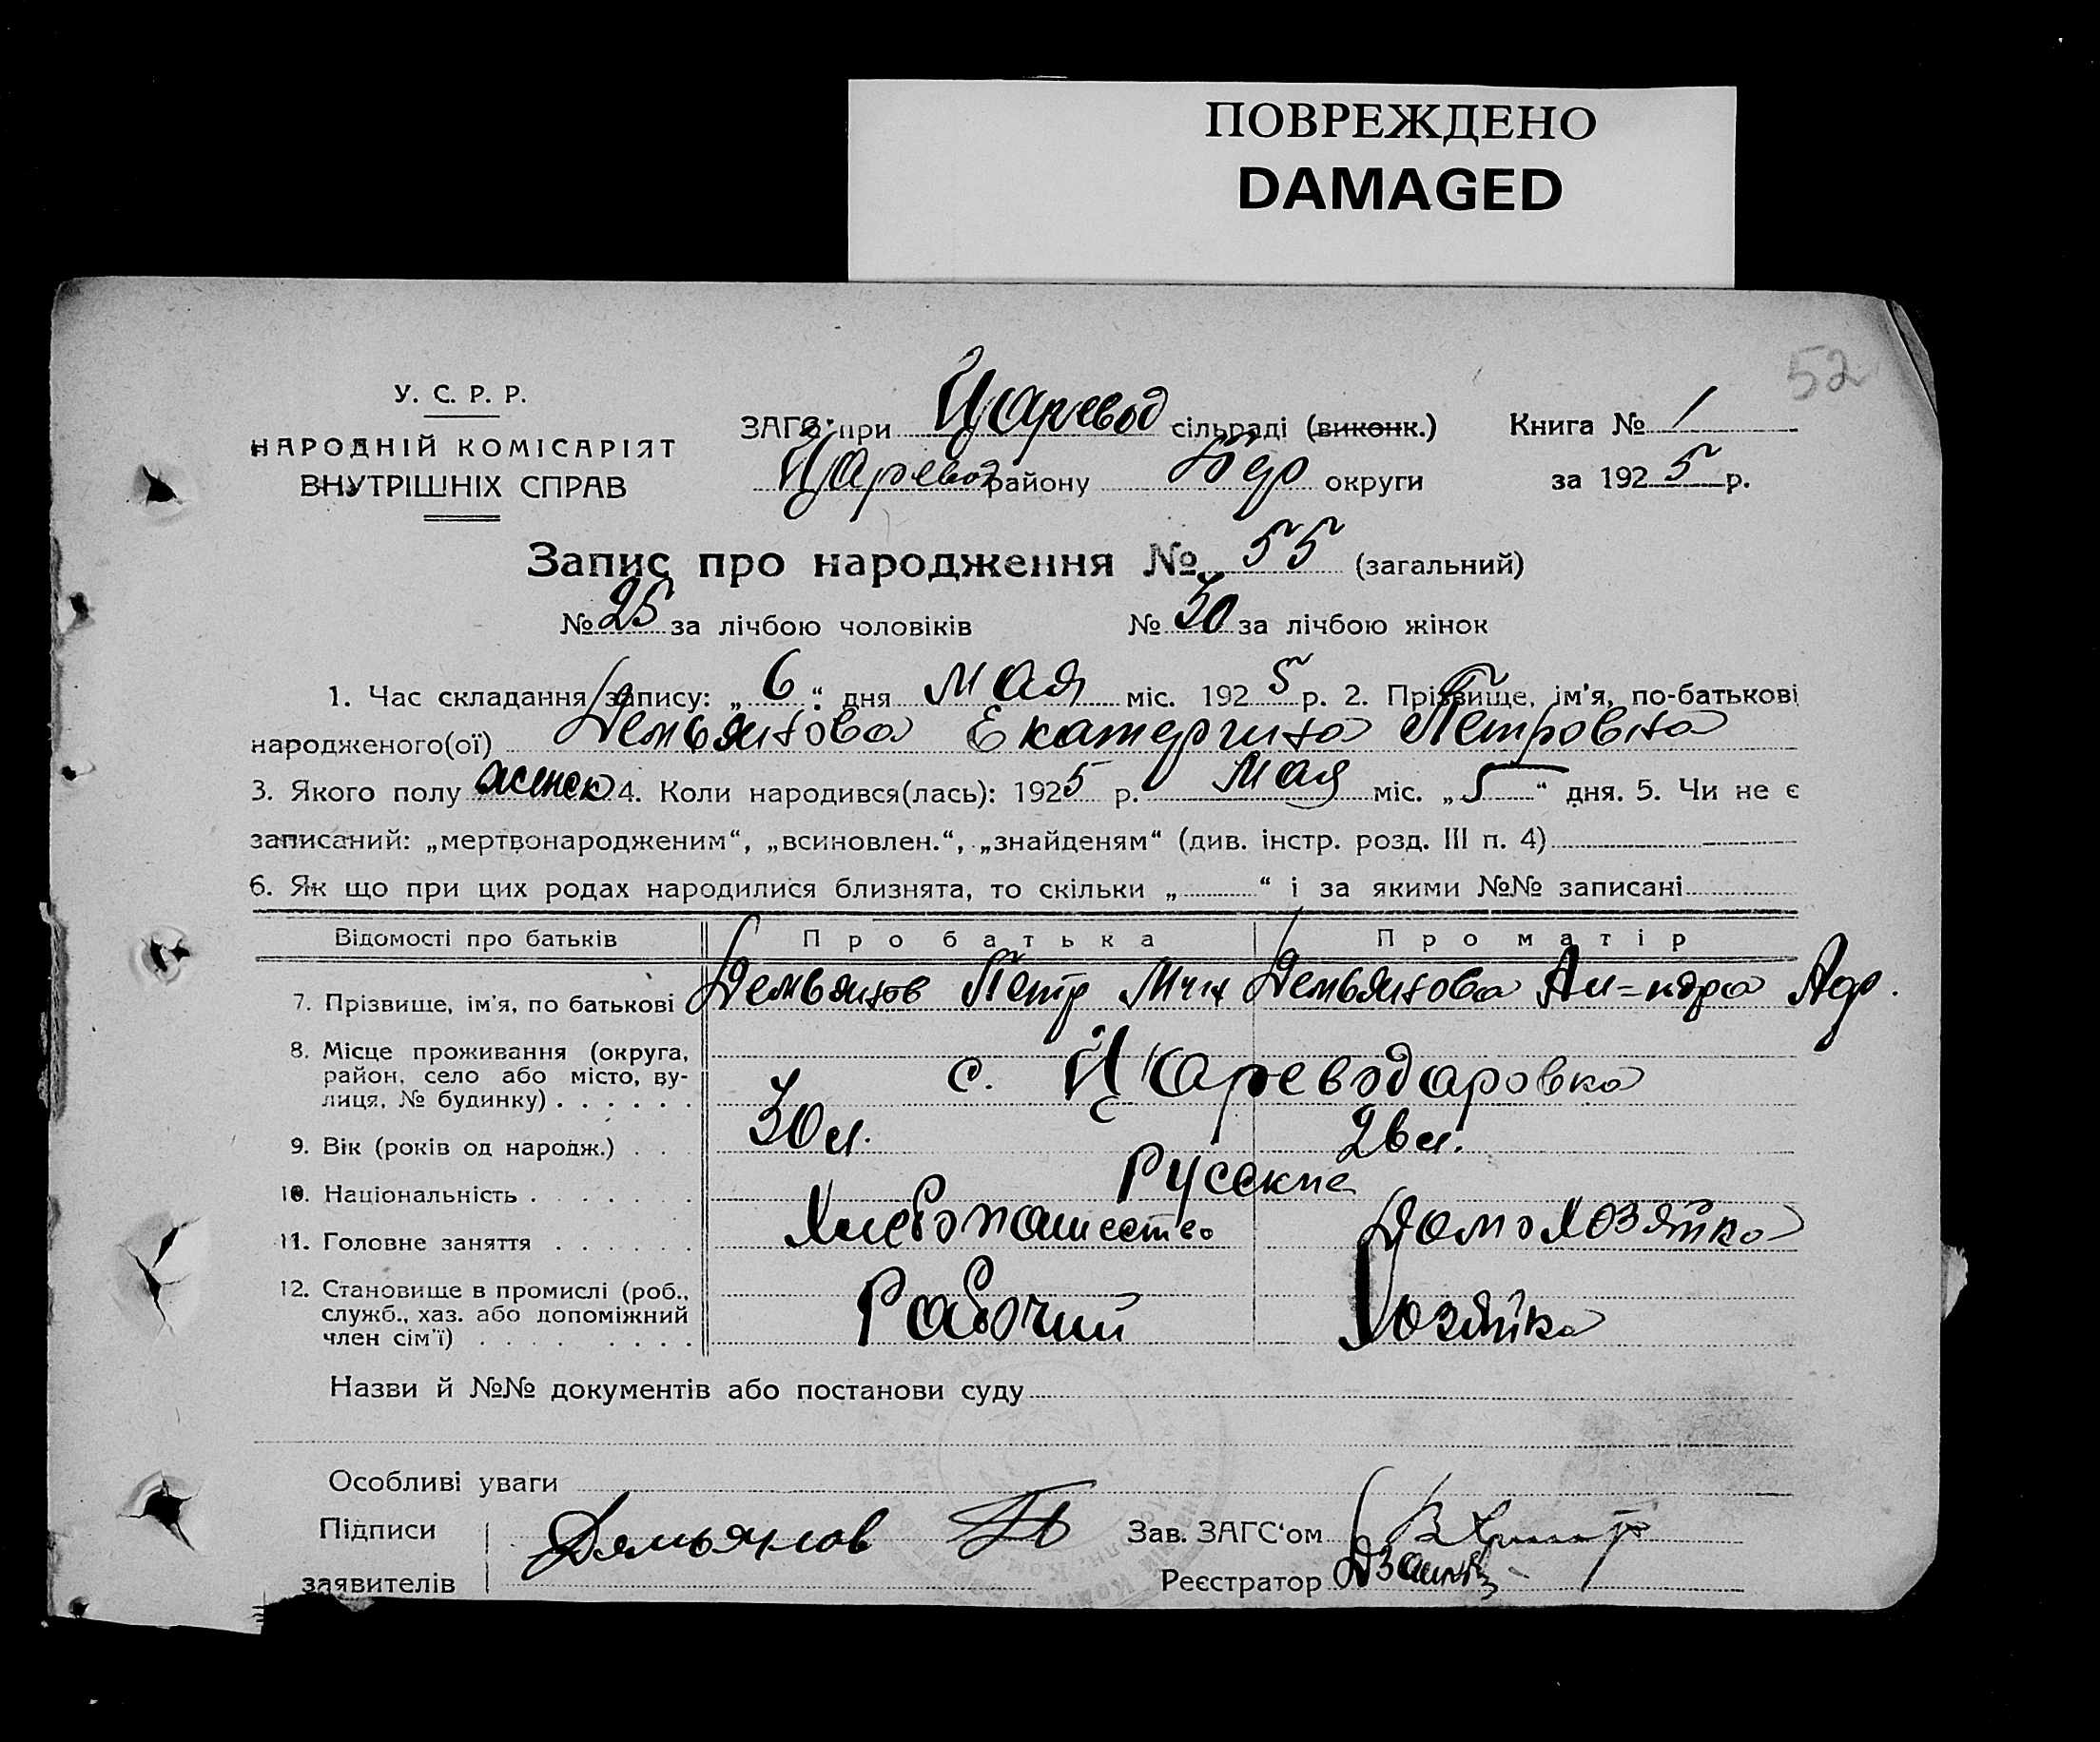 ПОВРЕЖДЕНО
DAMAGED
52
У. С. Р. Р.
НАРОДНІЙ КОМІСАРІЯТ
ВНУТРІШНІХ СПРАВ
ЗАГС при Царевод сільраді (виконк.) Книга № 1
Царевод району округи за 1925 р.
Запис про народження № 55 (загальний)
№ 25 за лічбою чоловіків № 30 за лічбою жінок
1. Час складання запису: „6“ дня мая міс. 1925 р. 2. Прізвище, ім'я, по-батькові
народженого(ої) Демьянова Екатерина Петровна
3. Якого полу женск 4. Коли народився(лась): 1925 р. мая міс. „5“ дня. 5. Чи не є
записаний: „мертвонародженим“, „всиновлен.“, „знайденям“ (див. інстр. розд. III п. 4)
6. Як що при цих родах народилися близнята, то скільки „ “ і за якими №№ записані
Відомості про батьків Про батька Про матір
7. Прізвище, ім'я, по батькові Демьянов Петр Мих Демьянова Ал=ндра
8. Місце проживання (округа,
район, село або місто, ву-
лиця, № будинку) . . . . . . с. Цареводаровка
9. Вік (років од народж.) . . . 30 л. 26 л.
10. Національність . . . . . . . Русские
11. Головне заняття . . . . . . Хлебопашество Домохозяйка
12. Становище в промислі (роб.,
служб., хаз. або допоміжний
член сім'ї) . . . . . . . . Рабочий Хозяйка
Назви й №№ документів або постанови суду
Особливі уваги
Підписи Демьянов Зав. ЗАГС'ом
заявителів Реєстратор